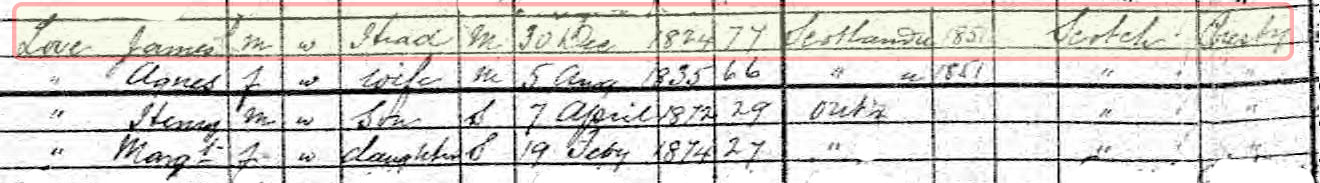 Love James m w Head M 30 Dec 1824 77 Scotland u 1851 Scotch Presby
" Agnes f w wife M 5 Aug 1835 66 " u 1851 " "
" Henry m w Son S 7 April 1872 29 Ont r " "
" Margt f w daughter S 19 Feby 1874 27 " " "